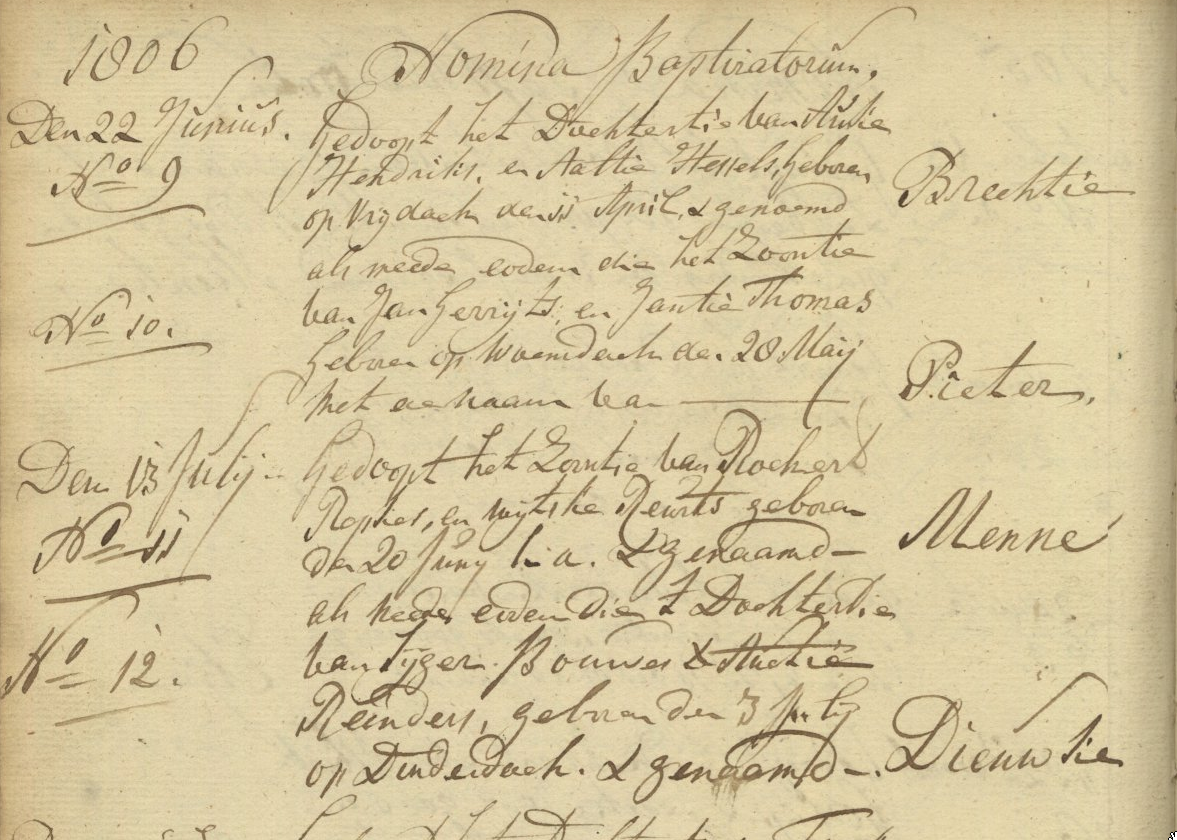 1806 Nomina Baptizatorum.
Den 22 Junius. Gedoopt het Dochtertie van Aukie
No 9 Hendriks, en Aaltie Hessels, geboren Brechtie
op Vrydach den 11 April, & genoemd
als meede eodem die het Zoontie
No 10. van Jan Gerryts, en Jantie Thomas
Geboren op Woensdach den 28 Maij Pieter.
met de naam van
Den 13 Julij Gedoopt het Zoontie van
No 11 en Wytske geboren Menne
den 20 Juny h. a. & genaamd
als meede eodem die 't Dochtertie
No 12. van Tjger Bouwes &
Reinders, geboren den 3 July
op Dinderdach. & genaamd. Dieuwtie